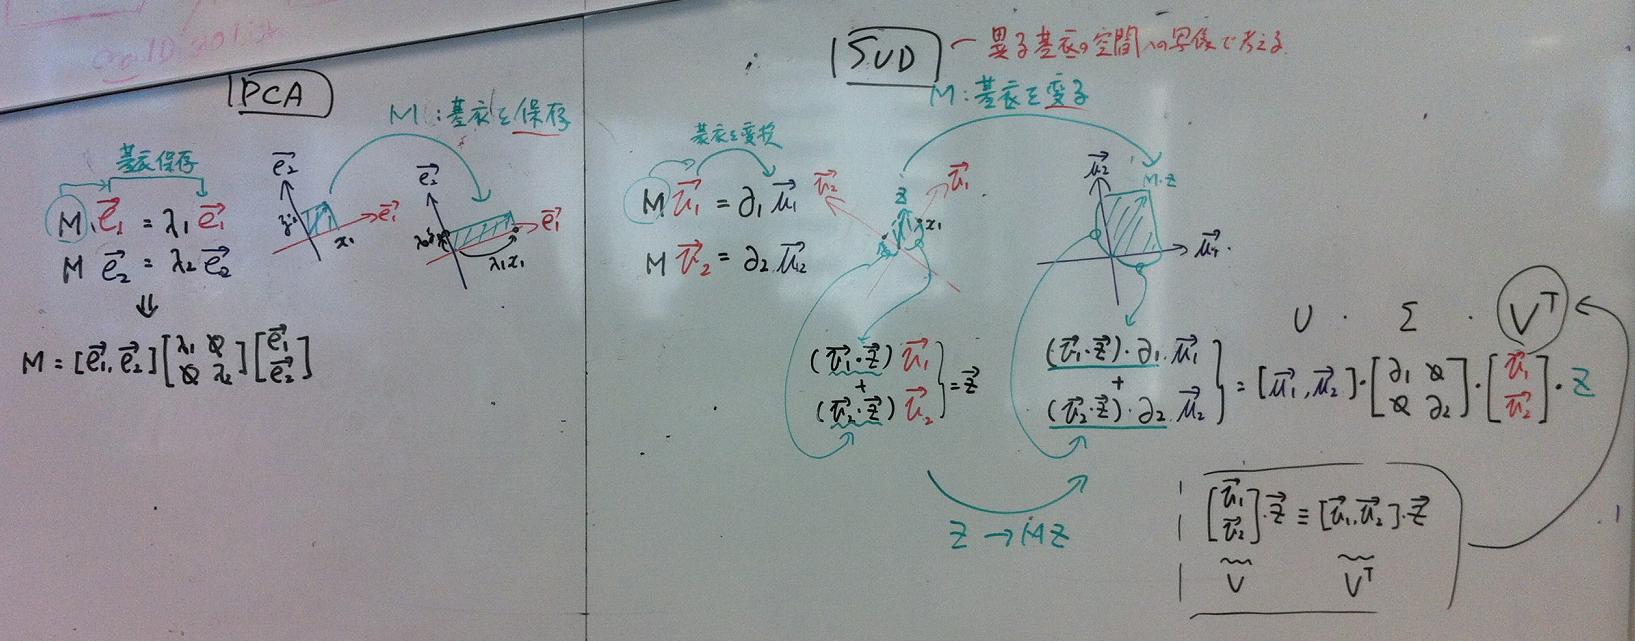 PCA
M:基底を保存
基底保存
M e⃗₁ = λ₁ e⃗₁
M e⃗₂ = λ₂ e⃗₂
⇓
M = [e⃗₁, e⃗₂] [λ₁ 0 0 λ₂] [e⃗₁ e⃗₂]
e⃗₂
e⃗₁
x₁
e⃗₂
e⃗₁
λ₁x₁
SVD
異る基底の空間への写像で考える
M:基底を変る
基底を変換
M v⃗₁ = ∂₁ μ⃗₁
M v⃗₂ = ∂₂ μ⃗₂
v⃗₂
z
v⃗₁
x₁
μ⃗₂
M·z
μ⃗₁
(v⃗₁·z⃗) v⃗₁
+
(v⃗₂·z⃗) v⃗₂
= z⃗
(v⃗₁·z⃗)·∂₁·μ⃗₁
+
(v⃗₂·z⃗)·∂₂·μ⃗₂
U · Σ · Vᵀ
= [μ⃗₁, μ⃗₂]·[∂₁ 0 0 ∂₂]·[v⃗₁ v⃗₂]·z
z → Mz
[v⃗₁ v⃗₂]·z⃗ ≡ [v⃗₁, v⃗₂]·z⃗
V Vᵀ